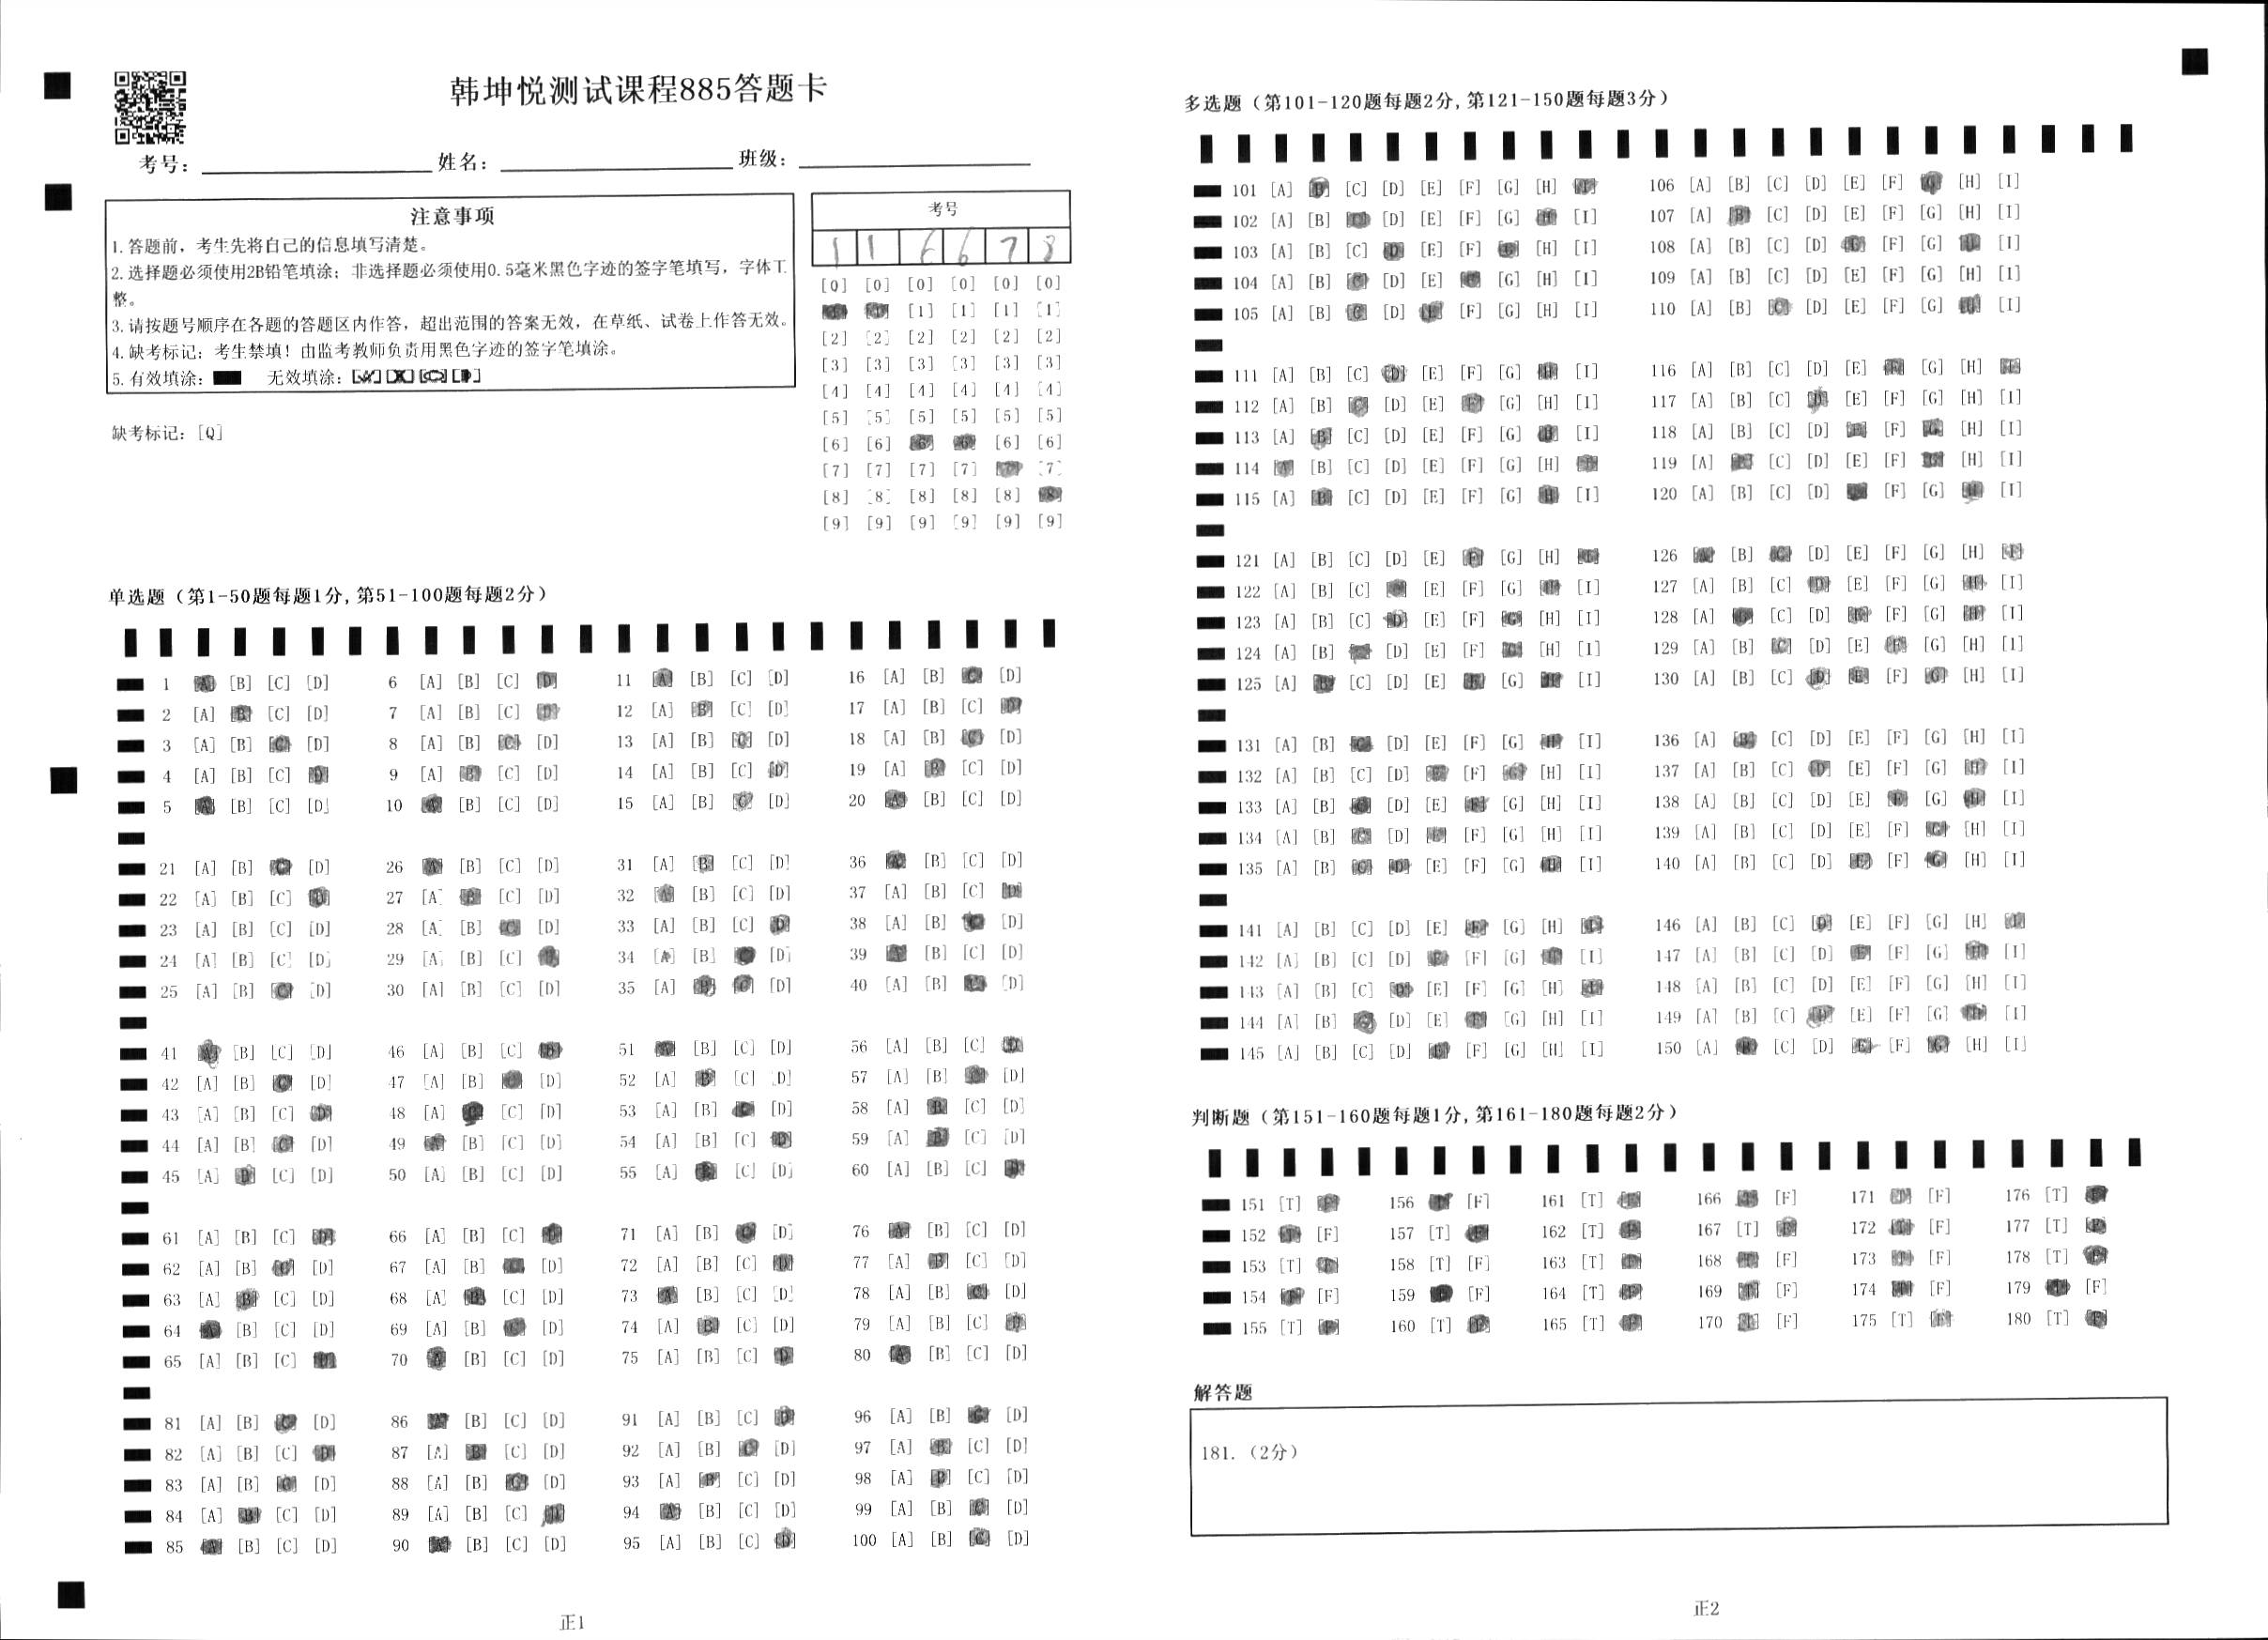 韩坤悦测试课程885答题卡
考号: 姓名: 班级:
注意事项
1.答题前，考生先将自己的信息填写清楚。
2.选择题必须使用2B铅笔填涂；非选择题必须使用0.5毫米黑色字迹的签字笔填写，字体工
整。
3.请按题号顺序在各题的答题区内作答，超出范围的答案无效，在草纸、试卷上作答无效。
4.缺考标记：考生禁填！由监考教师负责用黑色字迹的签字笔填涂。
5.有效填涂： 无效填涂：[A] [C]
缺考标记: [Q]
考号
1 1 6 6 7 8
[0] [0] [0] [0] [0] [0]
[1] [1] [1] [1] [1] [1]
[2] [2] [2] [2] [2] [2]
[3] [3] [3] [3] [3] [3]
[4] [4] [4] [4] [4] [4]
[5] [5] [5] [5] [5] [5]
[6] [6] [6] [6] [6] [6]
[7] [7] [7] [7] [7] [7]
[8] [8] [8] [8] [8] [8]
[9] [9] [9] [9] [9] [9]
单选题（第1-50题每题1分,第51-100题每题2分）
1 [A] [B] [C] [D] 6 [A] [B] [C] [D] 11 [A] [B] [C] [D] 16 [A] [B] [C] [D]
2 [A] [B] [C] [D] 7 [A] [B] [C] [D] 12 [A] [B] [C] [D] 17 [A] [B] [C] [D]
3 [A] [B] [C] [D] 8 [A] [B] [C] [D] 13 [A] [B] [C] [D] 18 [A] [B] [C] [D]
4 [A] [B] [C] [D] 9 [A] [B] [C] [D] 14 [A] [B] [C] [D] 19 [A] [B] [C] [D]
5 [A] [B] [C] [D] 10 [A] [B] [C] [D] 15 [A] [B] [C] [D] 20 [A] [B] [C] [D]
21 [A] [B] [C] [D] 26 [A] [B] [C] [D] 31 [A] [B] [C] [D] 36 [A] [B] [C] [D]
22 [A] [B] [C] [D] 27 [A] [B] [C] [D] 32 [A] [B] [C] [D] 37 [A] [B] [C] [D]
23 [A] [B] [C] [D] 28 [A] [B] [C] [D] 33 [A] [B] [C] [D] 38 [A] [B] [C] [D]
24 [A] [B] [C] [D] 29 [A] [B] [C] [D] 34 [A] [B] [C] [D] 39 [A] [B] [C] [D]
25 [A] [B] [C] [D] 30 [A] [B] [C] [D] 35 [A] [B] [C] [D] 40 [A] [B] [C] [D]
41 [A] [B] [C] [D] 46 [A] [B] [C] [D] 51 [A] [B] [C] [D] 56 [A] [B] [C] [D]
42 [A] [B] [C] [D] 47 [A] [B] [C] [D] 52 [A] [B] [C] [D] 57 [A] [B] [C] [D]
43 [A] [B] [C] [D] 48 [A] [B] [C] [D] 53 [A] [B] [C] [D] 58 [A] [B] [C] [D]
44 [A] [B] [C] [D] 49 [A] [B] [C] [D] 54 [A] [B] [C] [D] 59 [A] [B] [C] [D]
45 [A] [B] [C] [D] 50 [A] [B] [C] [D] 55 [A] [B] [C] [D] 60 [A] [B] [C] [D]
61 [A] [B] [C] [D] 66 [A] [B] [C] [D] 71 [A] [B] [C] [D] 76 [A] [B] [C] [D]
62 [A] [B] [C] [D] 67 [A] [B] [C] [D] 72 [A] [B] [C] [D] 77 [A] [B] [C] [D]
63 [A] [B] [C] [D] 68 [A] [B] [C] [D] 73 [A] [B] [C] [D] 78 [A] [B] [C] [D]
64 [A] [B] [C] [D] 69 [A] [B] [C] [D] 74 [A] [B] [C] [D] 79 [A] [B] [C] [D]
65 [A] [B] [C] [D] 70 [A] [B] [C] [D] 75 [A] [B] [C] [D] 80 [A] [B] [C] [D]
81 [A] [B] [C] [D] 86 [A] [B] [C] [D] 91 [A] [B] [C] [D] 96 [A] [B] [C] [D]
82 [A] [B] [C] [D] 87 [A] [B] [C] [D] 92 [A] [B] [C] [D] 97 [A] [B] [C] [D]
83 [A] [B] [C] [D] 88 [A] [B] [C] [D] 93 [A] [B] [C] [D] 98 [A] [B] [C] [D]
84 [A] [B] [C] [D] 89 [A] [B] [C] [D] 94 [A] [B] [C] [D] 99 [A] [B] [C] [D]
85 [A] [B] [C] [D] 90 [A] [B] [C] [D] 95 [A] [B] [C] [D] 100 [A] [B] [C] [D]
正1
多选题（第101-120题每题2分,第121-150题每题3分）
101 [A] [B] [C] [D] [E] [F] [G] [H] [I] 106 [A] [B] [C] [D] [E] [F] [G] [H] [I]
102 [A] [B] [C] [D] [E] [F] [G] [H] [I] 107 [A] [B] [C] [D] [E] [F] [G] [H] [I]
103 [A] [B] [C] [D] [E] [F] [G] [H] [I] 108 [A] [B] [C] [D] [E] [F] [G] [H] [I]
104 [A] [B] [C] [D] [E] [F] [G] [H] [I] 109 [A] [B] [C] [D] [E] [F] [G] [H] [I]
105 [A] [B] [C] [D] [E] [F] [G] [H] [I] 110 [A] [B] [C] [D] [E] [F] [G] [H] [I]
111 [A] [B] [C] [D] [E] [F] [G] [H] [I] 116 [A] [B] [C] [D] [E] [F] [G] [H] [I]
112 [A] [B] [C] [D] [E] [F] [G] [H] [I] 117 [A] [B] [C] [D] [E] [F] [G] [H] [I]
113 [A] [B] [C] [D] [E] [F] [G] [H] [I] 118 [A] [B] [C] [D] [E] [F] [G] [H] [I]
114 [A] [B] [C] [D] [E] [F] [G] [H] [I] 119 [A] [B] [C] [D] [E] [F] [G] [H] [I]
115 [A] [B] [C] [D] [E] [F] [G] [H] [I] 120 [A] [B] [C] [D] [E] [F] [G] [H] [I]
121 [A] [B] [C] [D] [E] [F] [G] [H] [I] 126 [A] [B] [C] [D] [E] [F] [G] [H] [I]
122 [A] [B] [C] [D] [E] [F] [G] [H] [I] 127 [A] [B] [C] [D] [E] [F] [G] [H] [I]
123 [A] [B] [C] [D] [E] [F] [G] [H] [I] 128 [A] [B] [C] [D] [E] [F] [G] [H] [I]
124 [A] [B] [C] [D] [E] [F] [G] [H] [I] 129 [A] [B] [C] [D] [E] [F] [G] [H] [I]
125 [A] [B] [C] [D] [E] [F] [G] [H] [I] 130 [A] [B] [C] [D] [E] [F] [G] [H] [I]
131 [A] [B] [C] [D] [E] [F] [G] [H] [I] 136 [A] [B] [C] [D] [E] [F] [G] [H] [I]
132 [A] [B] [C] [D] [E] [F] [G] [H] [I] 137 [A] [B] [C] [D] [E] [F] [G] [H] [I]
133 [A] [B] [C] [D] [E] [F] [G] [H] [I] 138 [A] [B] [C] [D] [E] [F] [G] [H] [I]
134 [A] [B] [C] [D] [E] [F] [G] [H] [I] 139 [A] [B] [C] [D] [E] [F] [G] [H] [I]
135 [A] [B] [C] [D] [E] [F] [G] [H] [I] 140 [A] [B] [C] [D] [E] [F] [G] [H] [I]
141 [A] [B] [C] [D] [E] [F] [G] [H] [I] 146 [A] [B] [C] [D] [E] [F] [G] [H] [I]
142 [A] [B] [C] [D] [E] [F] [G] [H] [I] 147 [A] [B] [C] [D] [E] [F] [G] [H] [I]
143 [A] [B] [C] [D] [E] [F] [G] [H] [I] 148 [A] [B] [C] [D] [E] [F] [G] [H] [I]
144 [A] [B] [C] [D] [E] [F] [G] [H] [I] 149 [A] [B] [C] [D] [E] [F] [G] [H] [I]
145 [A] [B] [C] [D] [E] [F] [G] [H] [I] 150 [A] [B] [C] [D] [E] [F] [G] [H] [I]
判断题（第151-160题每题1分,第161-180题每题2分）
151 [T] [F] 156 [T] [F] 161 [T] [F] 166 [T] [F] 171 [T] [F] 176 [T] [F]
152 [T] [F] 157 [T] [F] 162 [T] [F] 167 [T] [F] 172 [T] [F] 177 [T] [F]
153 [T] [F] 158 [T] [F] 163 [T] [F] 168 [T] [F] 173 [T] [F] 178 [T] [F]
154 [T] [F] 159 [T] [F] 164 [T] [F] 169 [T] [F] 174 [T] [F] 179 [T] [F]
155 [T] [F] 160 [T] [F] 165 [T] [F] 170 [T] [F] 175 [T] [F] 180 [T] [F]
解答题
181.（2分）
正2